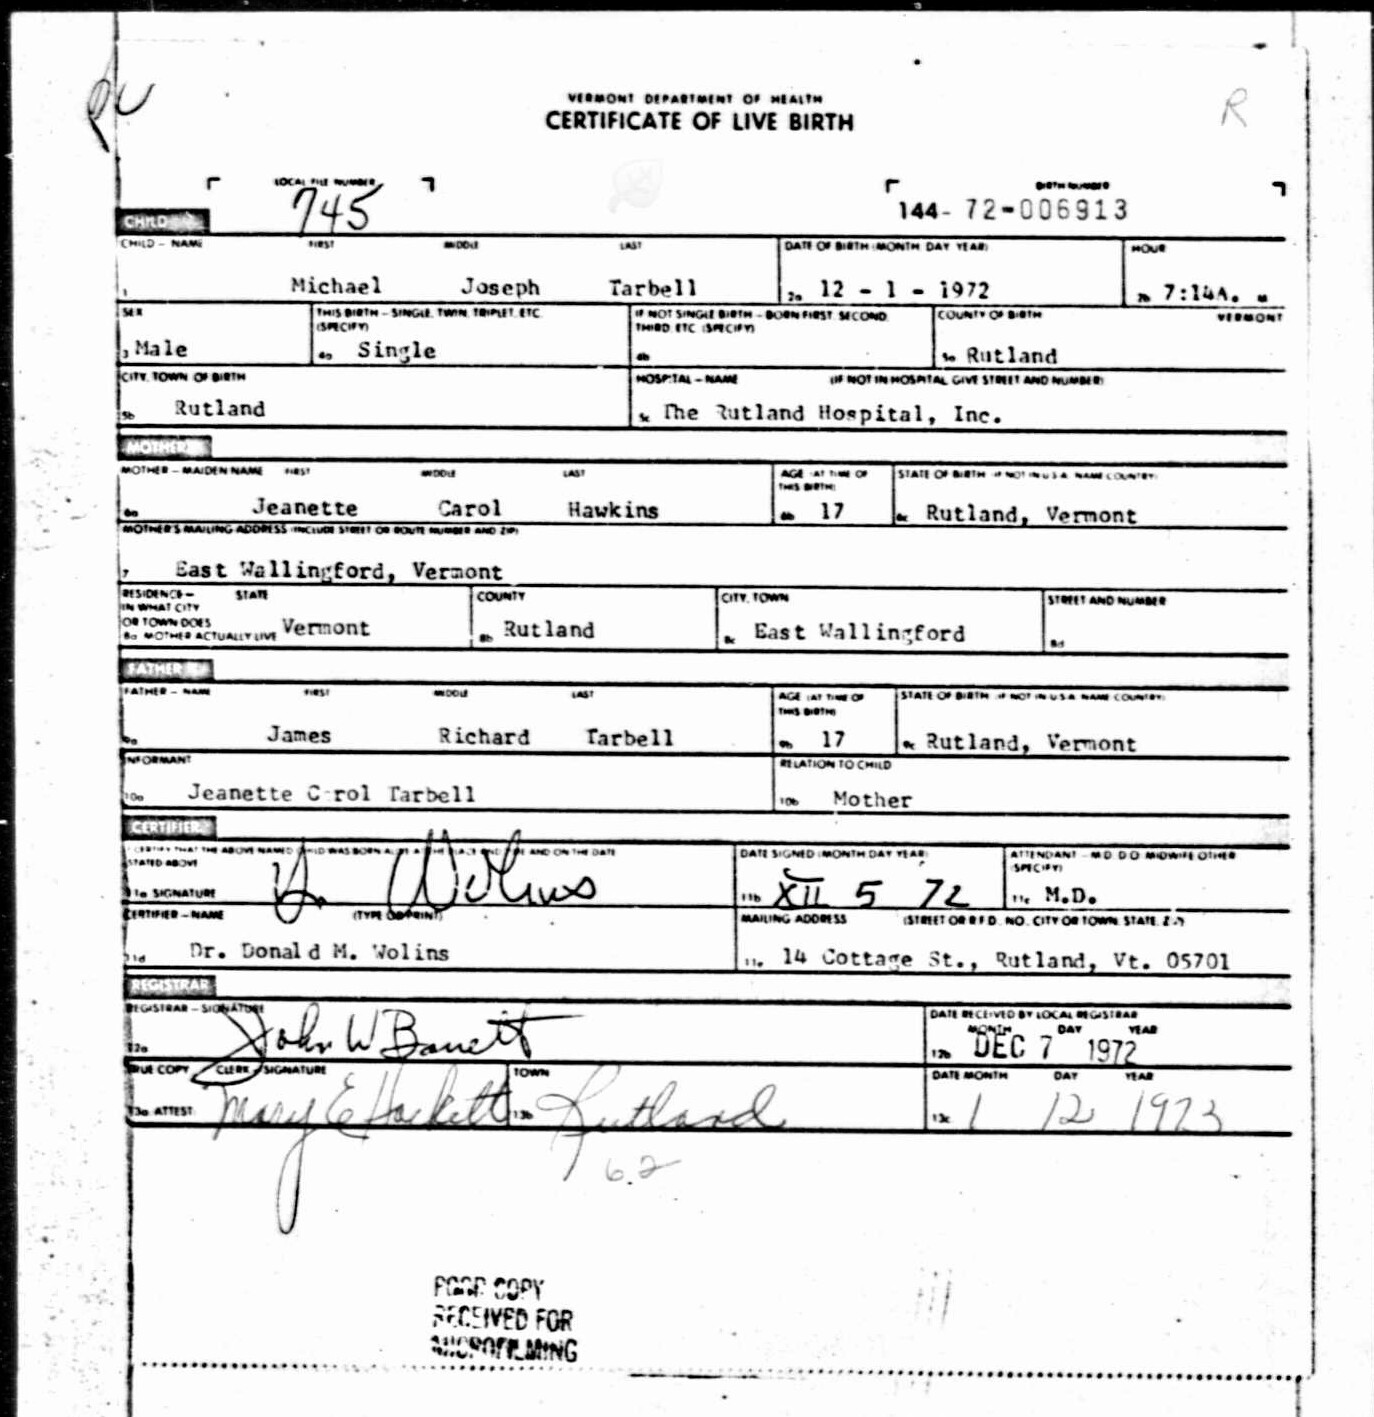 VERMONT DEPARTMENT OF HEALTH
CERTIFICATE OF LIVE BIRTH
R
LOCAL FILE NUMBER
745
BIRTH NUMBER
144- 72-006913
CHILD
CHILD – NAME FIRST MIDDLE LAST DATE OF BIRTH (MONTH DAY YEAR) HOUR
1 Michael Joseph Tarbell 2a 12 - 1 - 1972 2b 7:14A. M
SEX THIS BIRTH – SINGLE, TWIN, TRIPLET, ETC. (SPECIFY) IF NOT SINGLE BIRTH – BORN FIRST, SECOND, THIRD, ETC. (SPECIFY) COUNTY OF BIRTH VERMONT
3 Male 4a Single 4b 5a Rutland
CITY, TOWN OF BIRTH HOSPITAL – NAME (IF NOT IN HOSPITAL, GIVE STREET AND NUMBER)
5b Rutland 5c The Rutland Hospital, Inc.
MOTHER
MOTHER – MAIDEN NAME FIRST MIDDLE LAST AGE (AT TIME OF THIS BIRTH) STATE OF BIRTH (IF NOT IN U.S.A. NAME COUNTRY)
6a Jeanette Carol Hawkins 6b 17 6c Rutland, Vermont
MOTHER'S MAILING ADDRESS (INCLUDE STREET OR ROUTE NUMBER AND ZIP)
7 East Wallingford, Vermont
RESIDENCE – STATE COUNTY CITY, TOWN STREET AND NUMBER
IN WHAT CITY
OR TOWN DOES
8a MOTHER ACTUALLY LIVE Vermont 8b Rutland 8c East Wallingford 8d
FATHER
FATHER – NAME FIRST MIDDLE LAST AGE (AT TIME OF THIS BIRTH) STATE OF BIRTH (IF NOT IN U.S.A. NAME COUNTRY)
9a James Richard Tarbell 9b 17 9c Rutland, Vermont
INFORMANT RELATION TO CHILD
10a Jeanette C rol Tarbell 10b Mother
CERTIFIER
I CERTIFY THAT THE ABOVE NAMED CHILD WAS BORN ALIVE AT THE PLACE AND TIME AND ON THE DATE STATED ABOVE DATE SIGNED (MONTH DAY YEAR) ATTENDANT – M.D. D.O. MIDWIFE OTHER (SPECIFY)
11a SIGNATURE Wolins 11b XII 5 72 11c M.D.
CERTIFIER – NAME (TYPE OR PRINT) MAILING ADDRESS (STREET OR R.F.D. NO., CITY OR TOWN, STATE, ZIP)
11d Dr. Donald M. Wolins 11e 14 Cottage St., Rutland, Vt. 05701
REGISTRAR
REGISTRAR – SIGNATURE DATE RECEIVED BY LOCAL REGISTRAR
MONTH DAY YEAR
12a John W Barrett 12b DEC 7 1972
TRUE COPY CLERK – SIGNATURE TOWN DATE MONTH DAY YEAR
13a ATTEST: Mary E Hackett 13b Rutland 13c 1 12 1973
62
POOR COPY
RECEIVED FOR
MICROFILMING